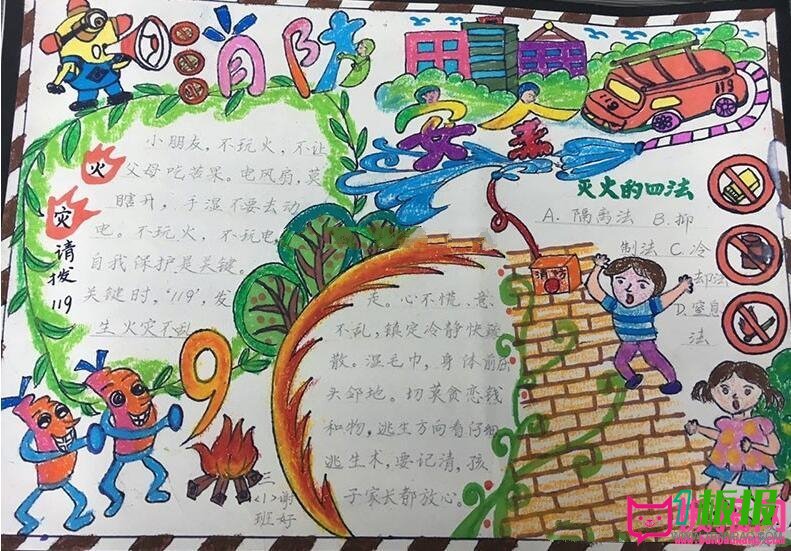 消防
安全
119
小朋友，不玩火，不让
父母吃苦果。电风扇，莫
瞎开，手湿不要去动
电。不玩火，不玩电，
自我保护是关键。
关键时，'119'，发
生火灾不乱
火
灾
请
拨
119
灭火的四法
A. 隔离法 B. 抑
制法 C. 冷
却法
D. 窒息
法
走。心不慌，意
不乱，镇定冷静快疏
散。湿毛巾，身体前
头邻地。切莫食恋钱
和物，逃生方向看仔细
逃生术，要记清，孩
子家长都放心。
三
<1>
班好
板报